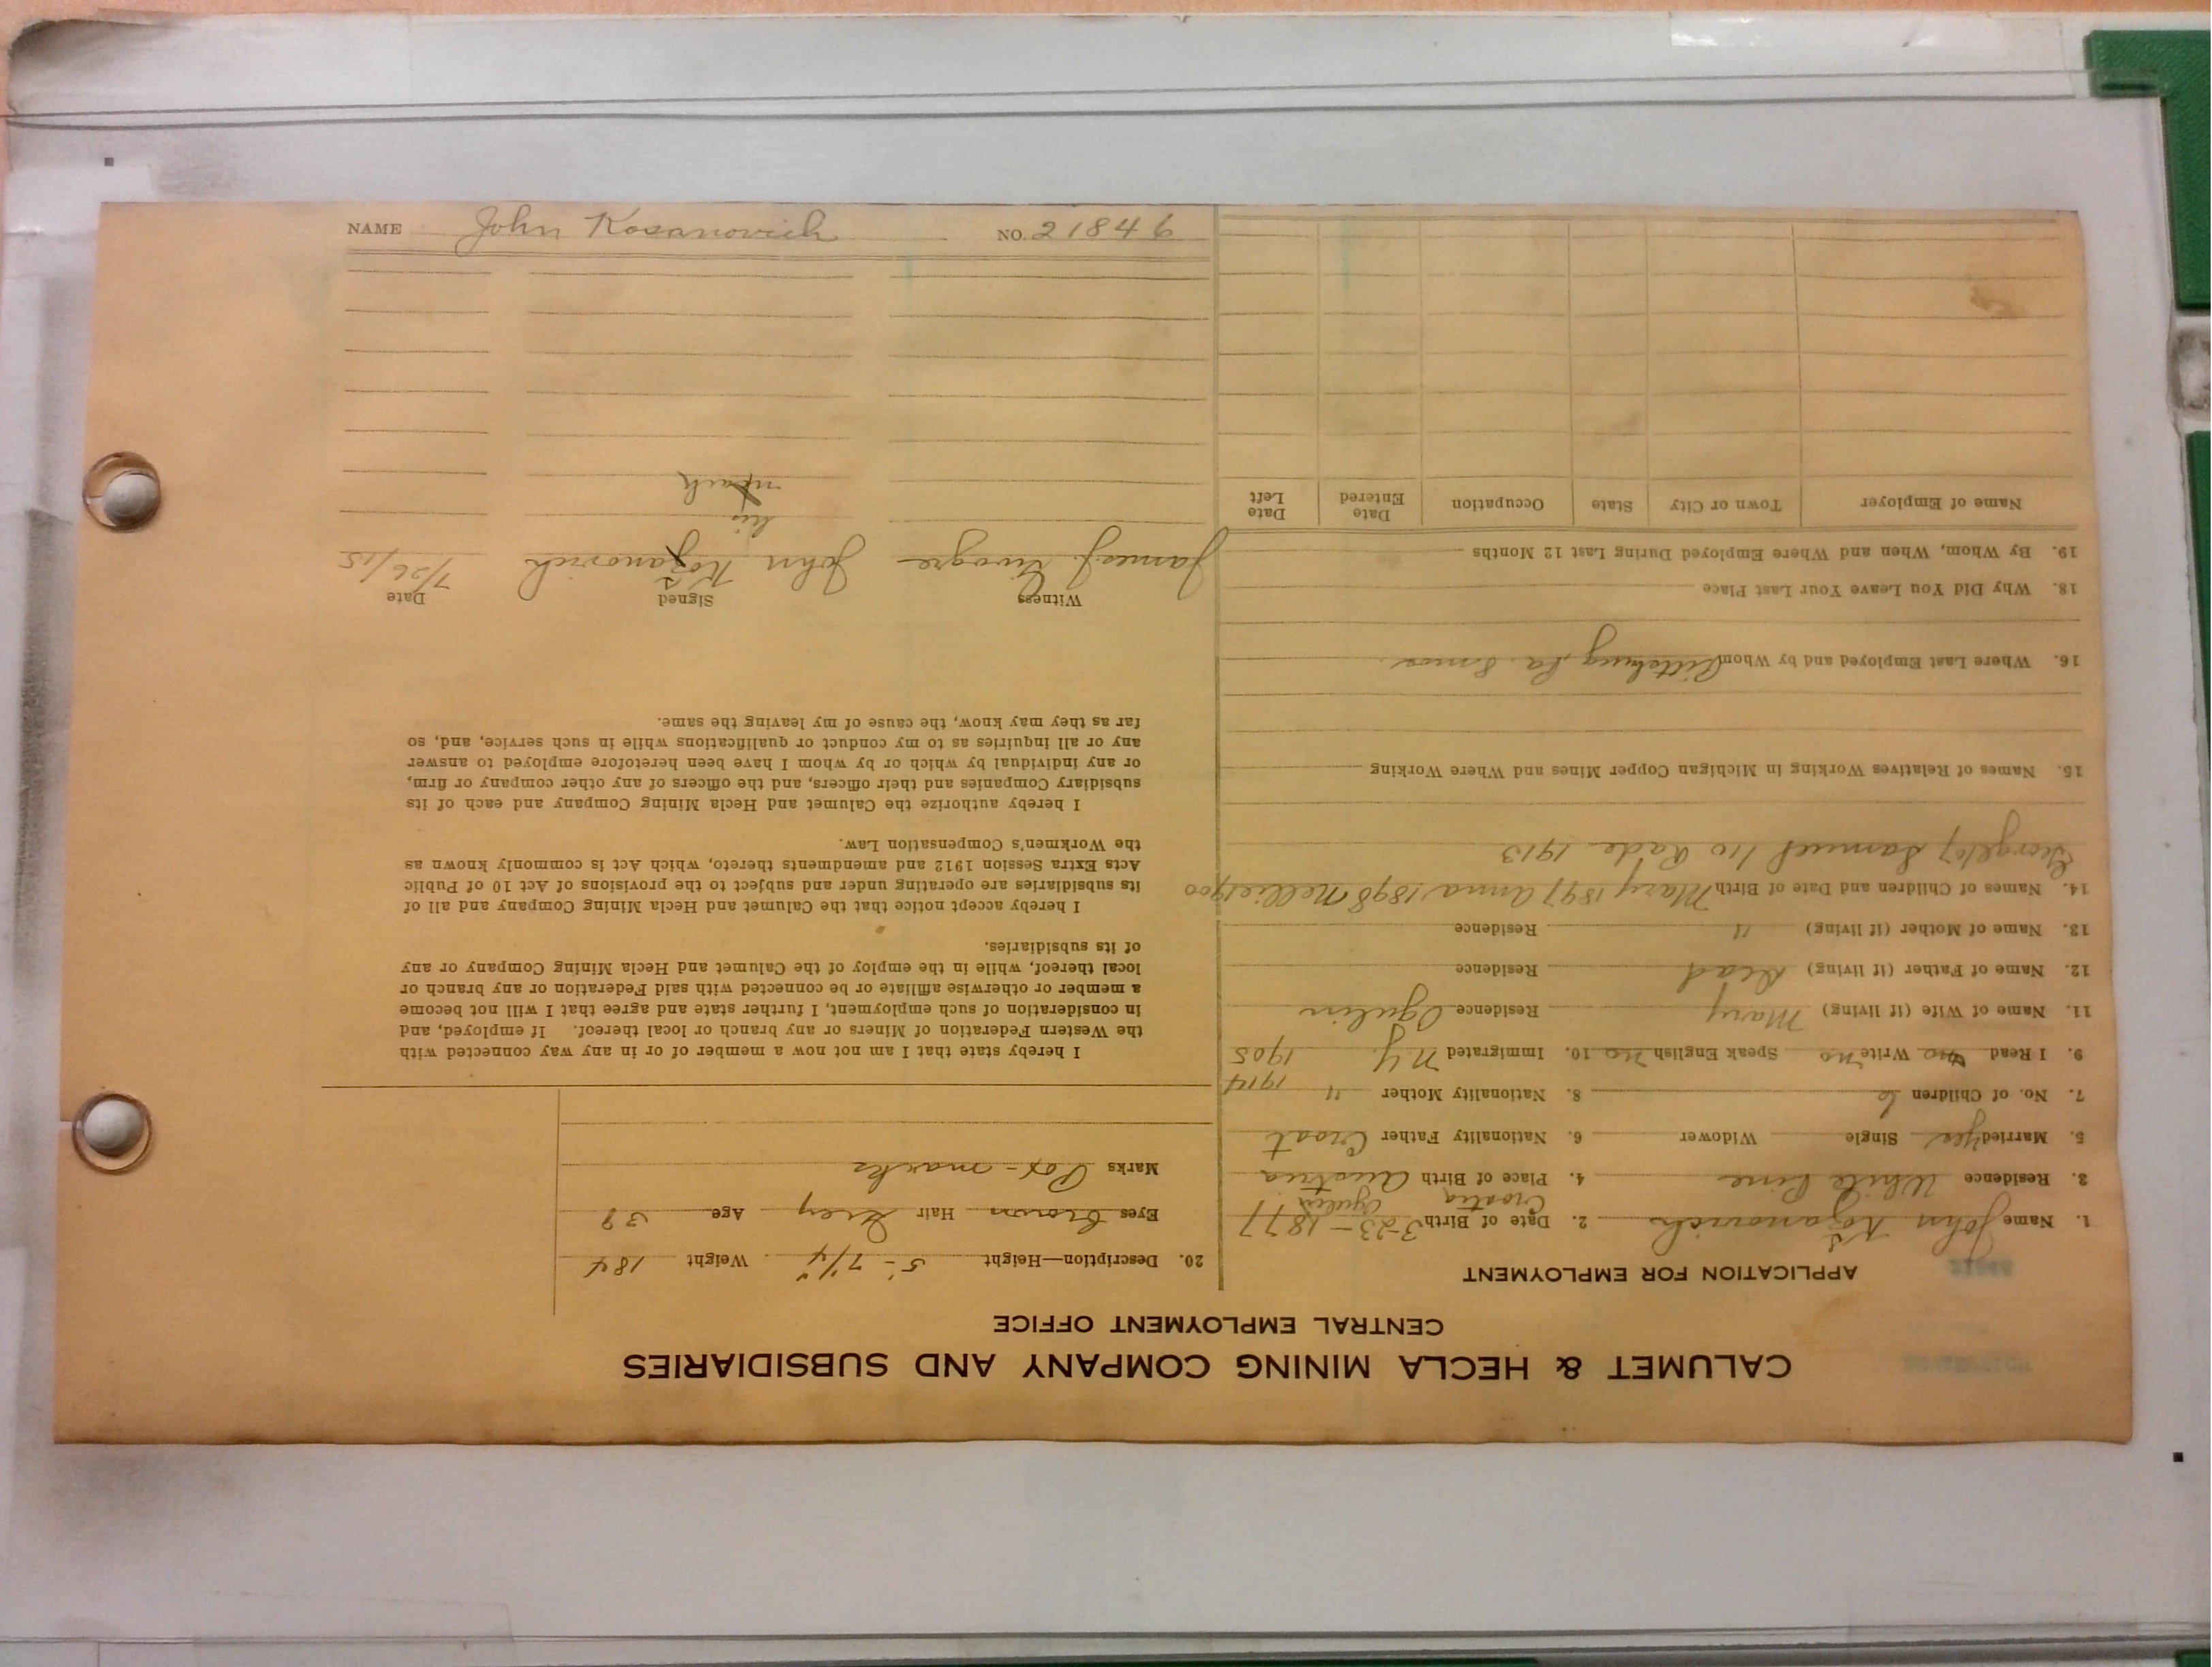 CALUMET & HECLA MINING COMPANY AND SUBSIDIARIES
CENTRAL EMPLOYMENT OFFICE
APPLICATION FOR EMPLOYMENT
1. Name John Kozanovich 2. Date of Birth 3-23-1877
Croatia Ogulin
3. Residence White Pine 4. Place of Birth Austria
5. Married yes Single Widower 6. Nationality Father Croat
7. No. of Children 6 8. Nationality Mother " 1914
9. I Read no Write no Speak English no 10. Immigrated N.Y. 1905
11. Name of Wife (if living) Mary Residence Ogulin
12. Name of Father (if living) Dead Residence
13. Name of Mother (if living) " Residence
14. Names of Children and Date of Birth Mary 1897 Anna 1898 Mellie 1900
George 07 Samuel 110 Rade 1913
15. Names of Relatives Working in Michigan Copper Mines and Where Working
16. Where Last Employed and by Whom Pittsburg, Pa.
18. Why Did You Leave Your Last Place
19. By Whom, When and Where Employed During Last 12 Months
Name of Employer Town or City State Occupation Date Entered Date Left
20. Description—Height 5'- 7 1/4" Weight 184
Eyes Brown Hair Grey Age 39
Marks Pox-marks
I hereby state that I am not now a member of or in any way connected with
the Western Federation of Miners or any branch or local thereof. If employed, and
in consideration of such employment, I further state and agree that I will not become
a member or otherwise affiliate or be connected with said Federation or any branch or
local thereof, while in the employ of the Calumet and Hecla Mining Company or any
of its subsidiaries.
I hereby accept notice that the Calumet and Hecla Mining Company and all of
its subsidiaries are operating under and subject to the provisions of Act 10 of Public
Acts Extra Session 1912 and amendments thereto, which Act is commonly known as
the Workmen's Compensation Law.
I hereby authorize the Calumet and Hecla Mining Company and each of its
subsidiary Companies and their officers, and the officers of any other company or firm,
or any individual by which or by whom I have been heretofore employed to answer
any or all inquiries as to my conduct or qualifications while in such service, and, so
far as they may know, the cause of my leaving the same.
Witness Signed Date
James J. John Kozanovich 7/26/15
his
x
mark
NAME John Kosanovich NO. 21846